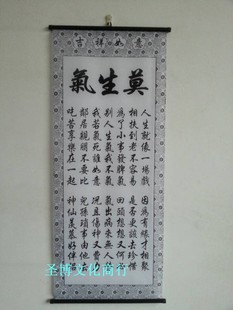 吉祥如意
莫生氣
人生就像一場戲 因為有緣才相聚
相扶到老不容易 是否更該去珍惜
為了小事發脾氣 回頭想想又何必
別人生氣我不氣 氣出病來無人替
我若氣死誰如意 況且傷神又費力
鄰居親朋不要比 兒孫瑣事由他去
吃苦享樂在一起 神仙羨慕好伴侶
圣博文化商行